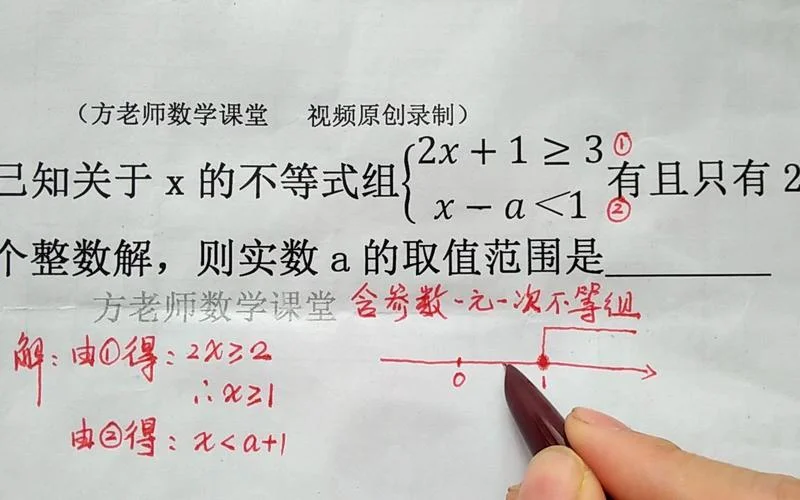 （方老师数学课堂 视频原创录制）
已知关于 x 的不等式组{2x + 1 ≥ 3 ① 有且只有 2
x − a < 1 ②
个整数解，则实数 a 的取值范围是________
方老师数学课堂 含参数一元一次不等组
解：由①得：2x≥2
∴x≥1
由②得：x<a+1
0 1